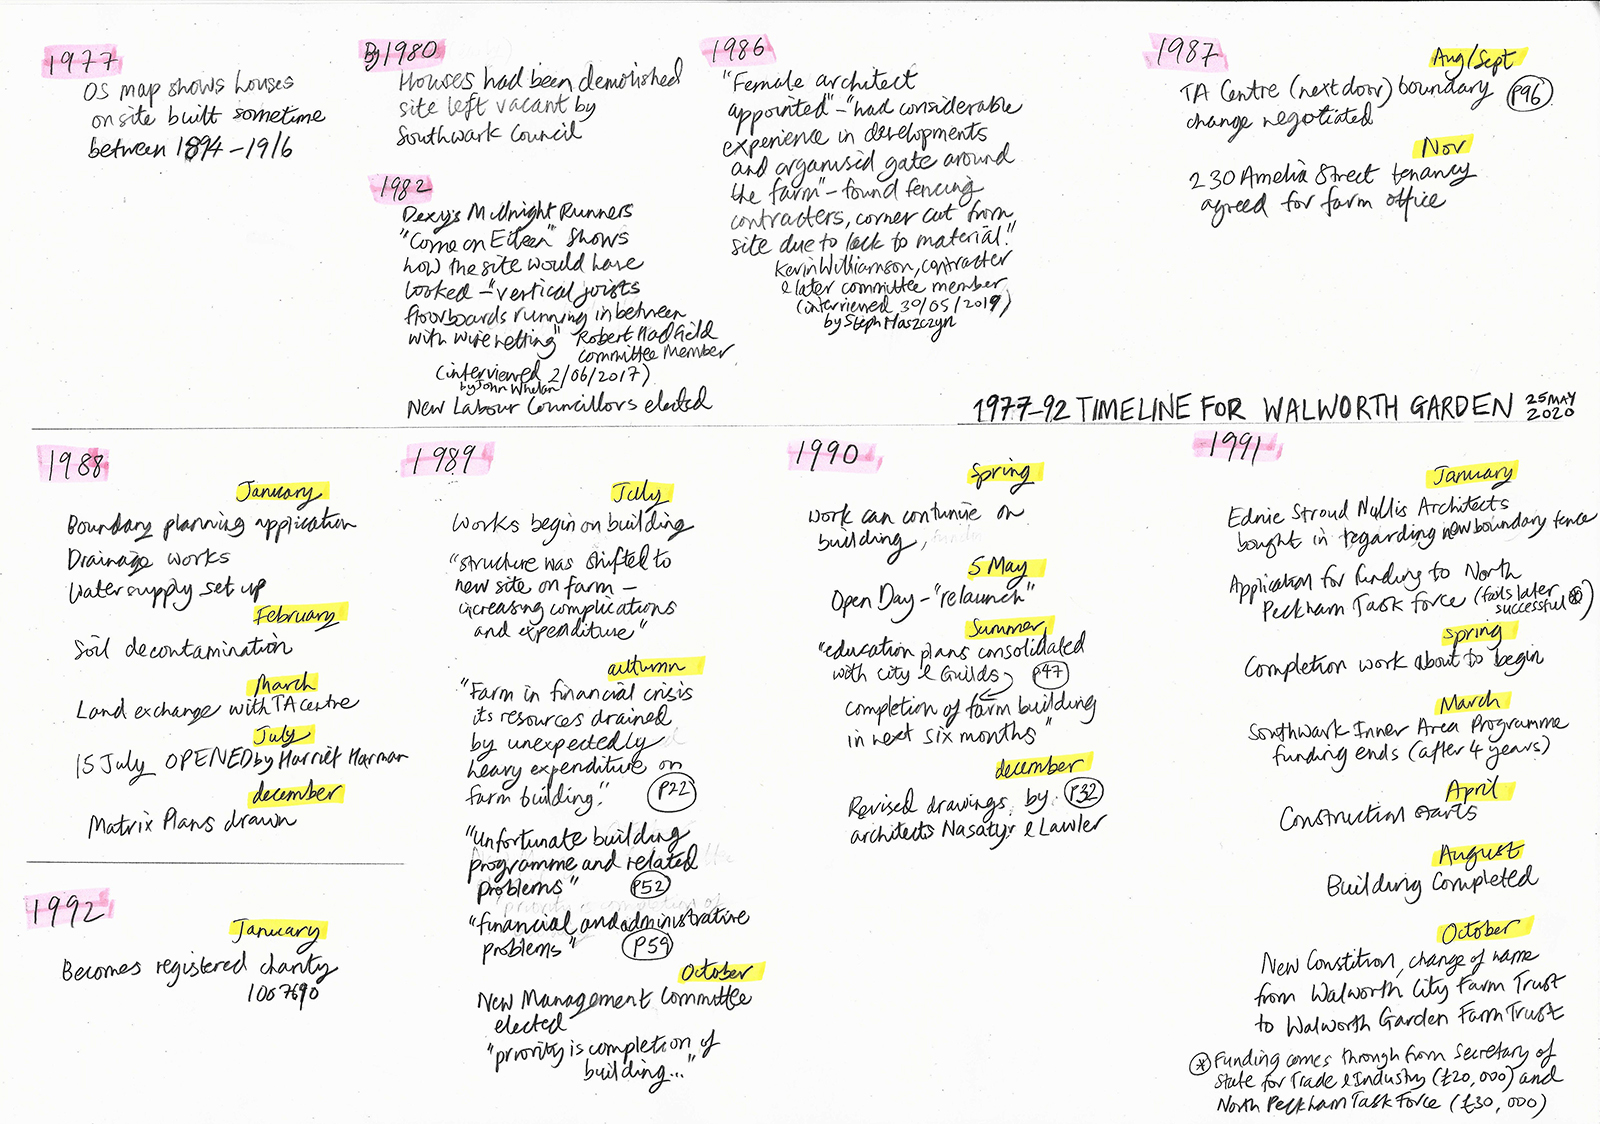 1977
OS map shows houses
on site built sometime
between 1894-1916
By 1980
Houses had been demolished
site left vacant by
Southwark Council
1982
Dexy's Midnight Runners
"Come on Eileen" shows
how the site would have
looked - "vertical joists
floorboards running in between
with wire netting" Robert Hadfield
committee Member
(interviewed 2/06/2017)
by John Whelan
New Labour Councillors elected
1986
"Female architect
appointed" - "had considerable
experience in developments
and organised gate around
the farm" - found fencing
contracters, corner cut from
site due to lack to material."
Kevin Williamson, contracter
& later committee member
(interviewed 30/05/2019)
by Steph Maszczyn
1987
Aug/Sept
TA Centre (next door) boundary P96
change negotiated
Nov
230 Amelia Street tenancy
agreed for farm office
1977-92 TIMELINE FOR WALWORTH GARDEN 25 MAY
2020
1988
January
Boundary planning application
Drainage works
Water supply set up
February
Soil decontamination
March
Land exchange with TA centre
July
15 July OPENED by Harriet Harman
december
Matrix Plans drawn
1989
July
Works begin on building
"structure was shifted to
new site on farm -
increasing complications
and expenditure"
autumn
"Farm in financial crisis
its resources drained
by unexpectedly
heavy expenditure on
farm building." P22
"Unfortunate building
programme and related
problems" P52
"financial and administrative
problems" P59
October
New Management Committee
elected
"priority is completion of
building..."
1990
Spring
work can contunue on
building,
5 May
Open Day - "relaunch"
Summer
"education plans consolidated
with City & Guilds P47
completion of farm building
in next six months"
december
Revised drawings by P32
architects Nasatyr & Lawler
1991
January
Ednie Stroud Nyllis Architects
bought in regarding new boundary fence
Application for funding to North
Peckham Task Force (fails later
successful *)
spring
Completion work about to begin
March
Southwark Inner Area Programme
funding ends (after 4 years)
April
Construction starts
August
Building Completed
October
New Constition, change of name
from Walworth City Farm Trust
to Walworth Garden Farm Trust
* Funding comes through from Secretary of
State for Trade & Industry (£20,000) and
North Peckham Task Force (£30,000)
1992
January
Becomes registered charity
1067690